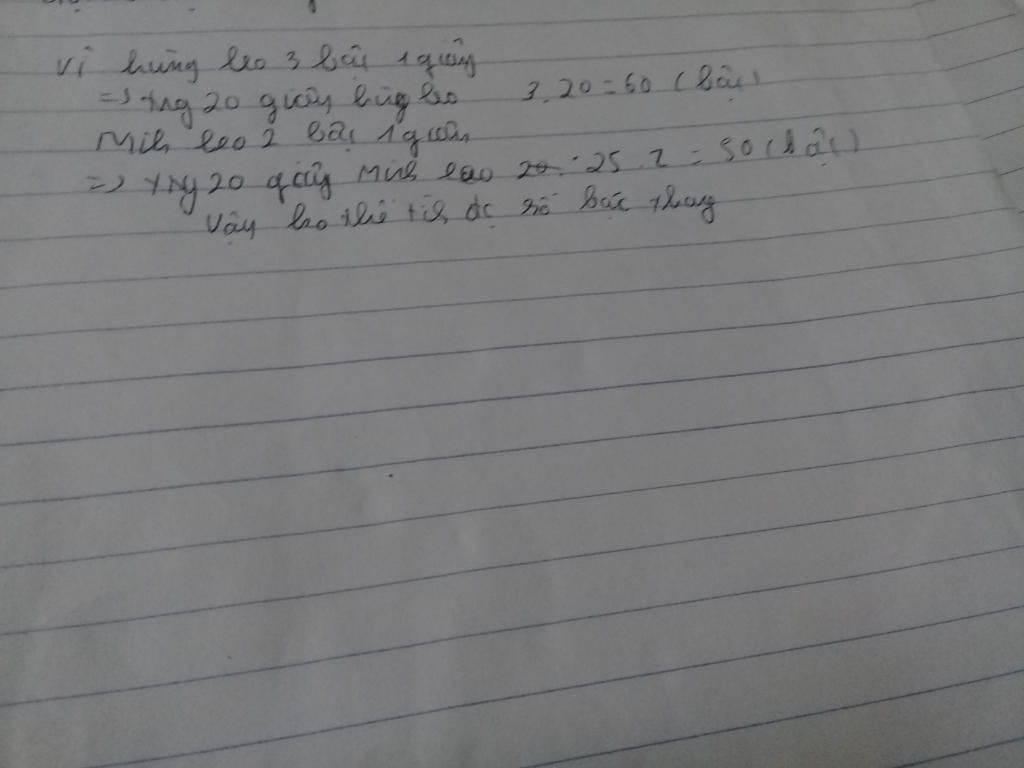 Vì hùng leo 3 bậc 1 giây
=> trng 20 giây hùng leo 3.20=60 (bậc)
Minh leo 2 bậc 1 giây
=> trng 20 giây Minh leo 25.2=50 (bậc)
Vậy tính đc số bậc thang